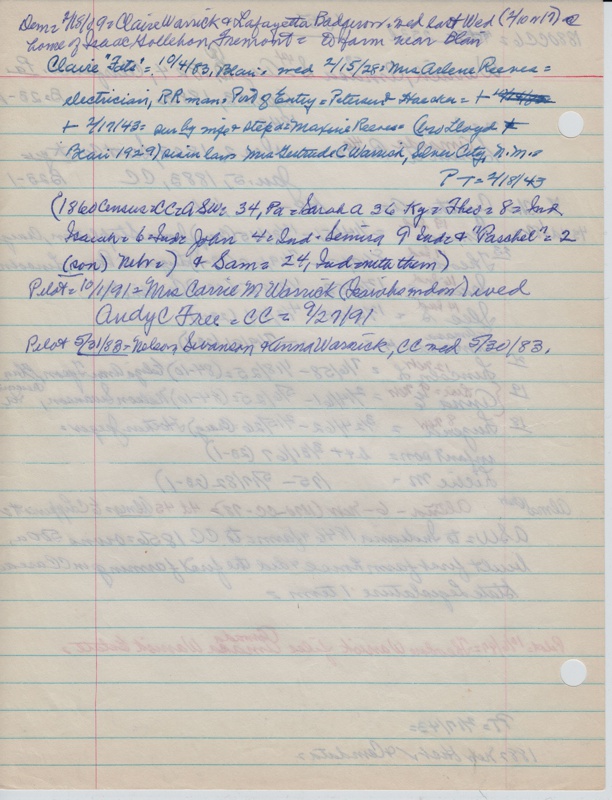 Dem= 2/18/09= Claire Warrick & Lafayetta Badgerow med last Wed (2/10 or 17) @
home of Isaac Gollehon, Fremont = To farm near Blair
Claire "Fate" = 10/4/83, Blair. med 2/15/28= Mrs Arlene Reeves=
electrician, RR man= Port of Entry = Peterson & Hansen = +
+ 2/17/43= sur by wife + step d= Maxine Reeves= Lloyd
Blair 1929) sis in law Mrs Gertrude C Warrick, Silver City, N.M.=
PT= 2/18/43
(1860 Census= CC= ASW= 34, Pa= Sarah A 36 Ky= Theo= 8= Ind
Isaiah= 6= Ind= John 4= Ind= 9 Ind= & "Paschel"= 2
(son) Nebr=) & Sam= 24, Ind= with them)
Pilot= 10/1/91= Mrs Carrie M Warrick (Isaiahs wdow) wed
Andy C Free = CC = 9/27/91
Pilot 5/31/83= Nelson Swanson & Anna Warrick, CC med 5/30/83.